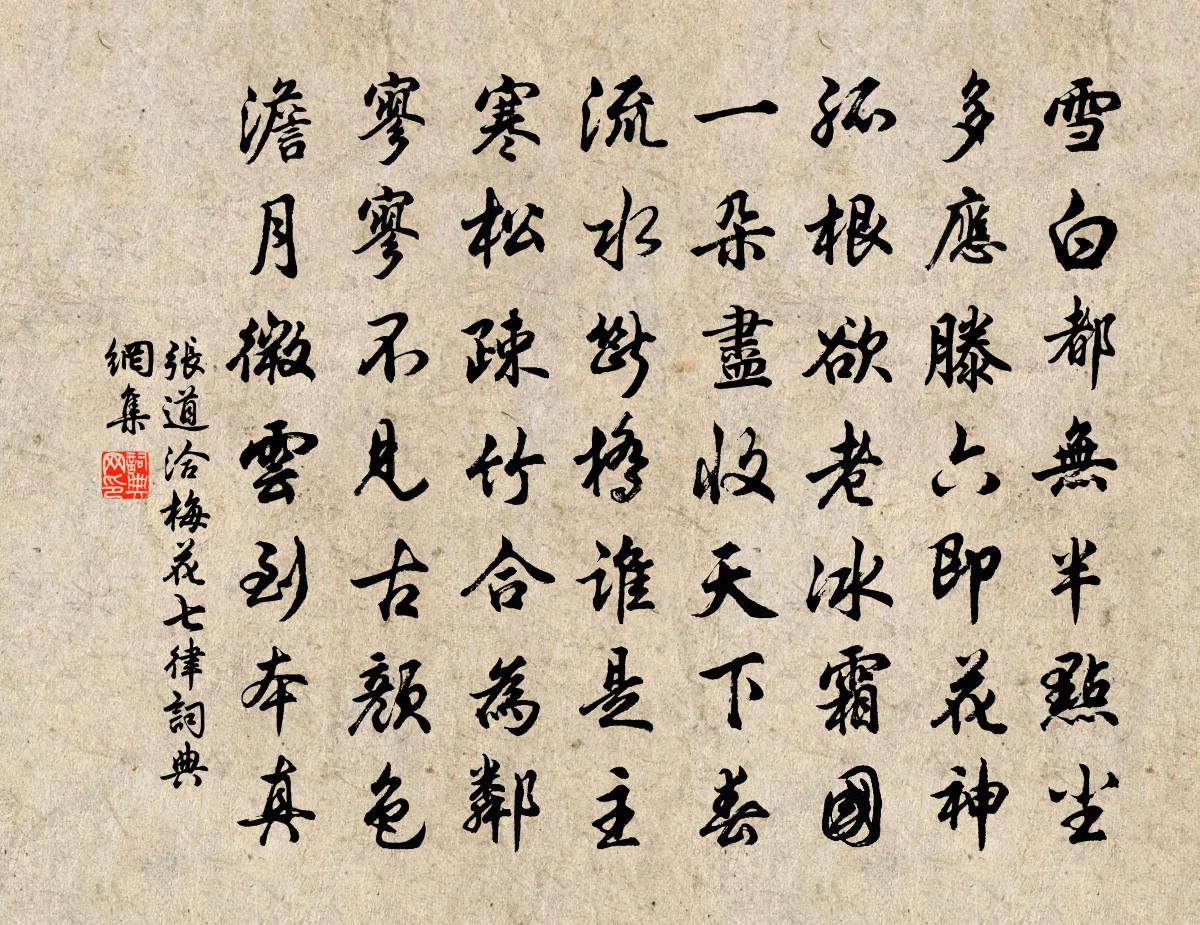 雪白都無半點尘
多應滕六即花神
孤根欲老冰霜國
一朵盡收天下春
流水斷橋誰是主
寒松疎竹合為鄰
寥寥不見古顏色
澹月微雲到本真
張道洽梅花七律詞典
網集
詞典
网印